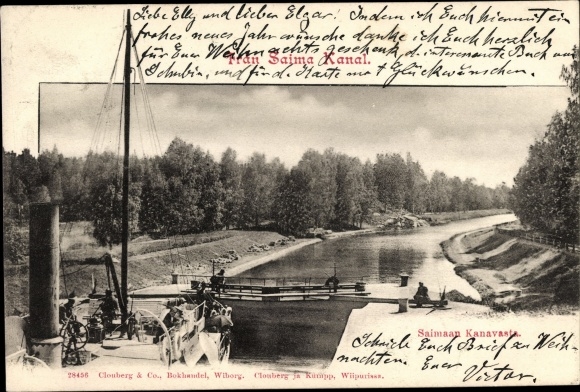 Liebe Elly und lieber Elgar! Indem ich Euch hiermit ein
frohes neues Jahr wünsche danke ich Euch herzlich
für Euer Weihnachtsgeschenk, d. interessante Buch von
Schubin, und für d. Karte mit Glückwünschen.
Från Saima Kanal.
Saimaan Kanavasta.
Schicke Euch Brief an Weih-
nachten. Euer
Victor.
28456 Clouberg & Co., Bokhandel, Wiborg. Clouberg ja Kumpp, Wiipurissa.